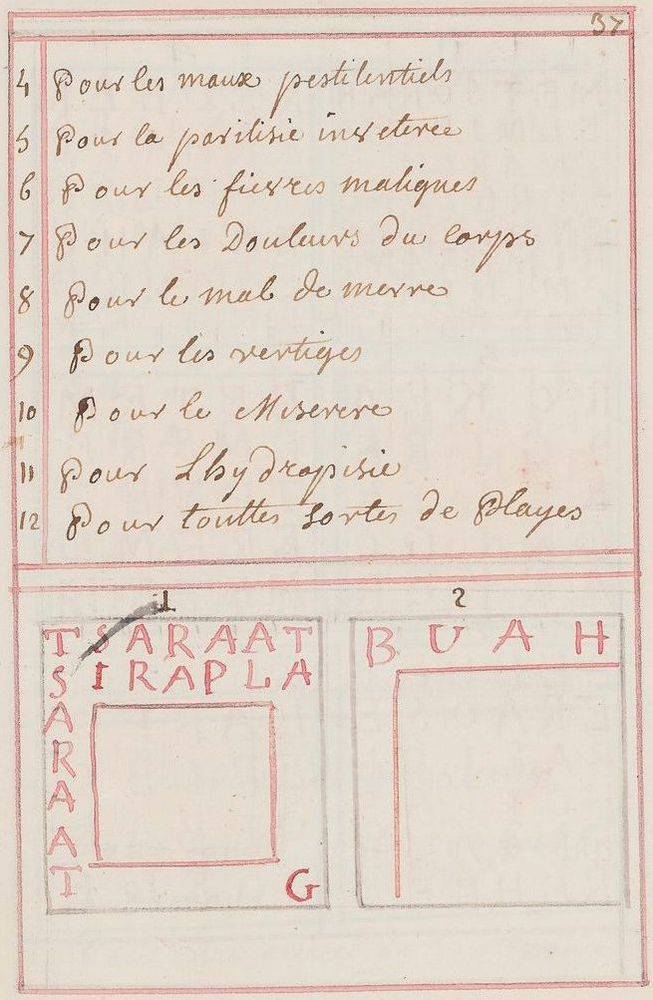 37
4 Pour les maux pestilentiels
5 Pour la parilisie inveteree
6 Pour les fievres malignes
7 Pour les Douleurs du Corps
8 Pour le mal de merre
9 Pour les vertiges
10 Pour le Miserere
11 Pour Lhydropisie
12 Pour touttes sortes de Playes
1
TSARAAT
SIRAPLA
A
R
A
A
T G
2
BUAH